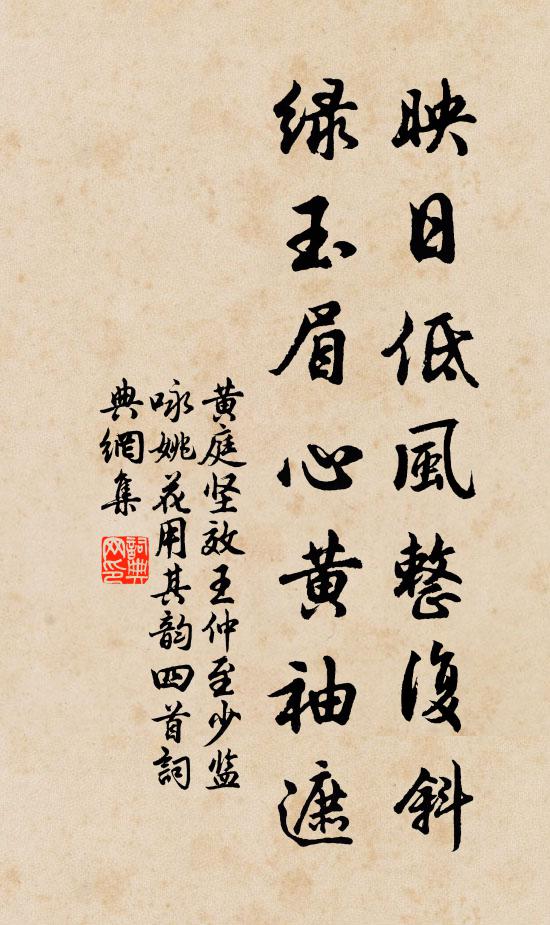 映日低風整復斜
綠玉眉心黄袖遮
黄庭坚效王仲至少监
咏姚花用其韵四首詞
典網集
詞典網印